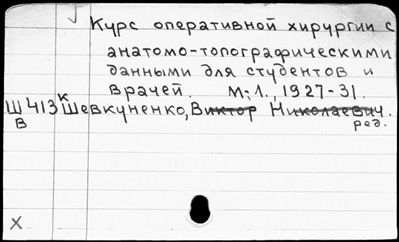 Курс оперативной хирургии с
анатомо-топографическими
данными для студентов и
врачей. М.-Л., 1927-31.
Ш413к Шевкуненко, Виктор Николаевич.
В ред.
X